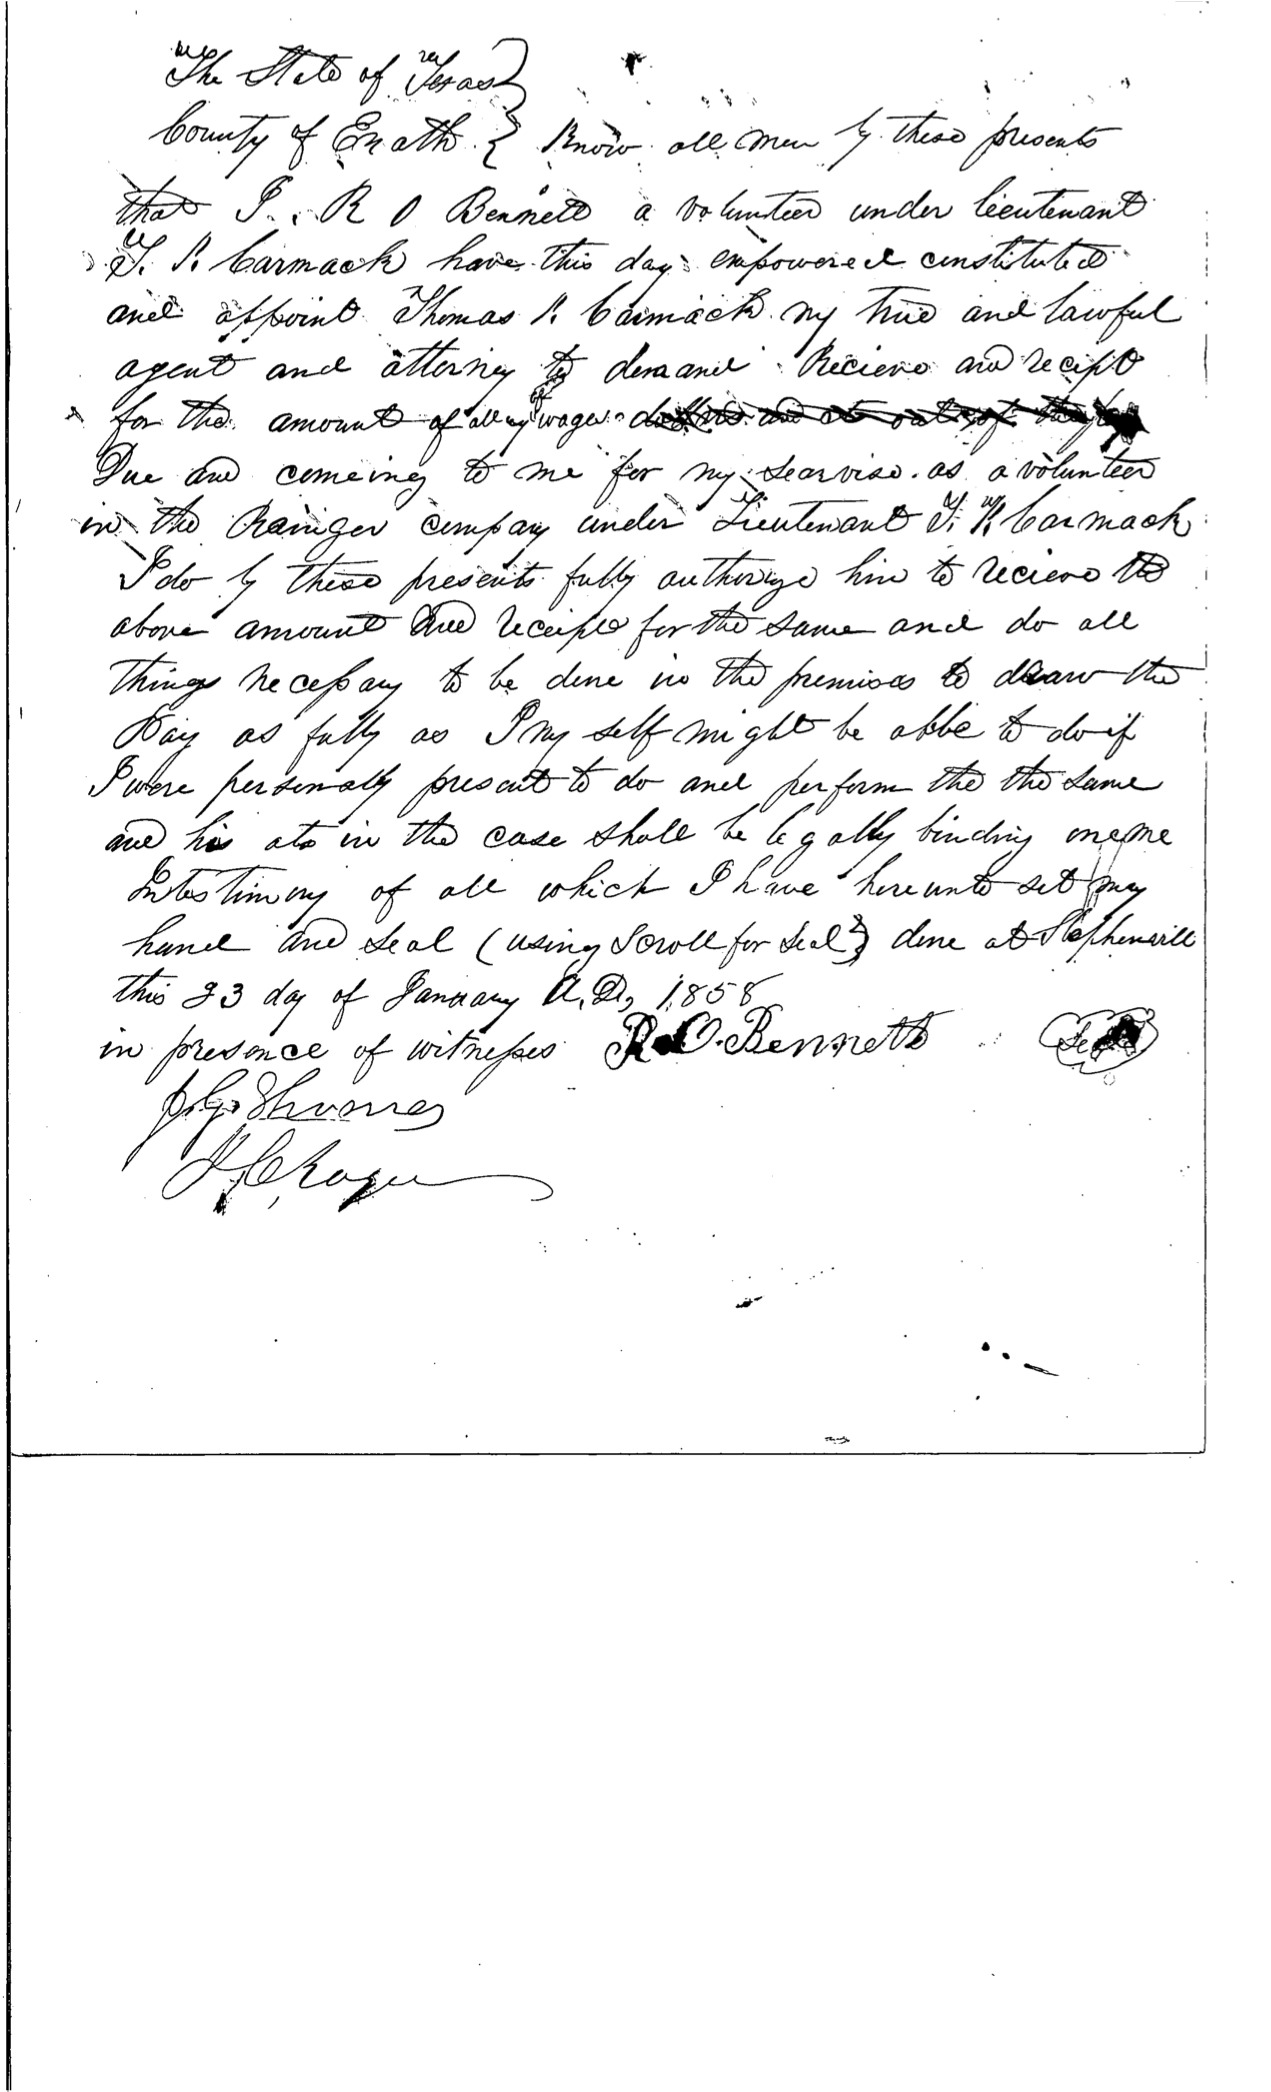 The State of Texas }
County of Erath } Know all men by these presents
that I, R O Bennett a volunteer under lieutenant
T. K. Carmack have this day empowered constituted
and appoint Thomas K. Carmack my true and lawful
agent and attorney to demand Recieve and recipt
for the amount of all my wages
Due and comeing to me for my searvise as a volunteer
in the Rainger company under Lieutenant T. K. Carmack
I do by these presents fully authorize him to recieve the
above amount and receipt for the same and do all
things necessary to be done in the premises to draw the
Pay as fully as I my self might be able to do if
I were personally present to do and perform the the same
and his ats in the case shall be legally binding on me
In testimony of all which I have hereunto set my
hand and seal (using Scroll for seal) done at Stephenvill
this 23 day of January A.D, 1858
in presence of witnesses R. O. Bennett Seal